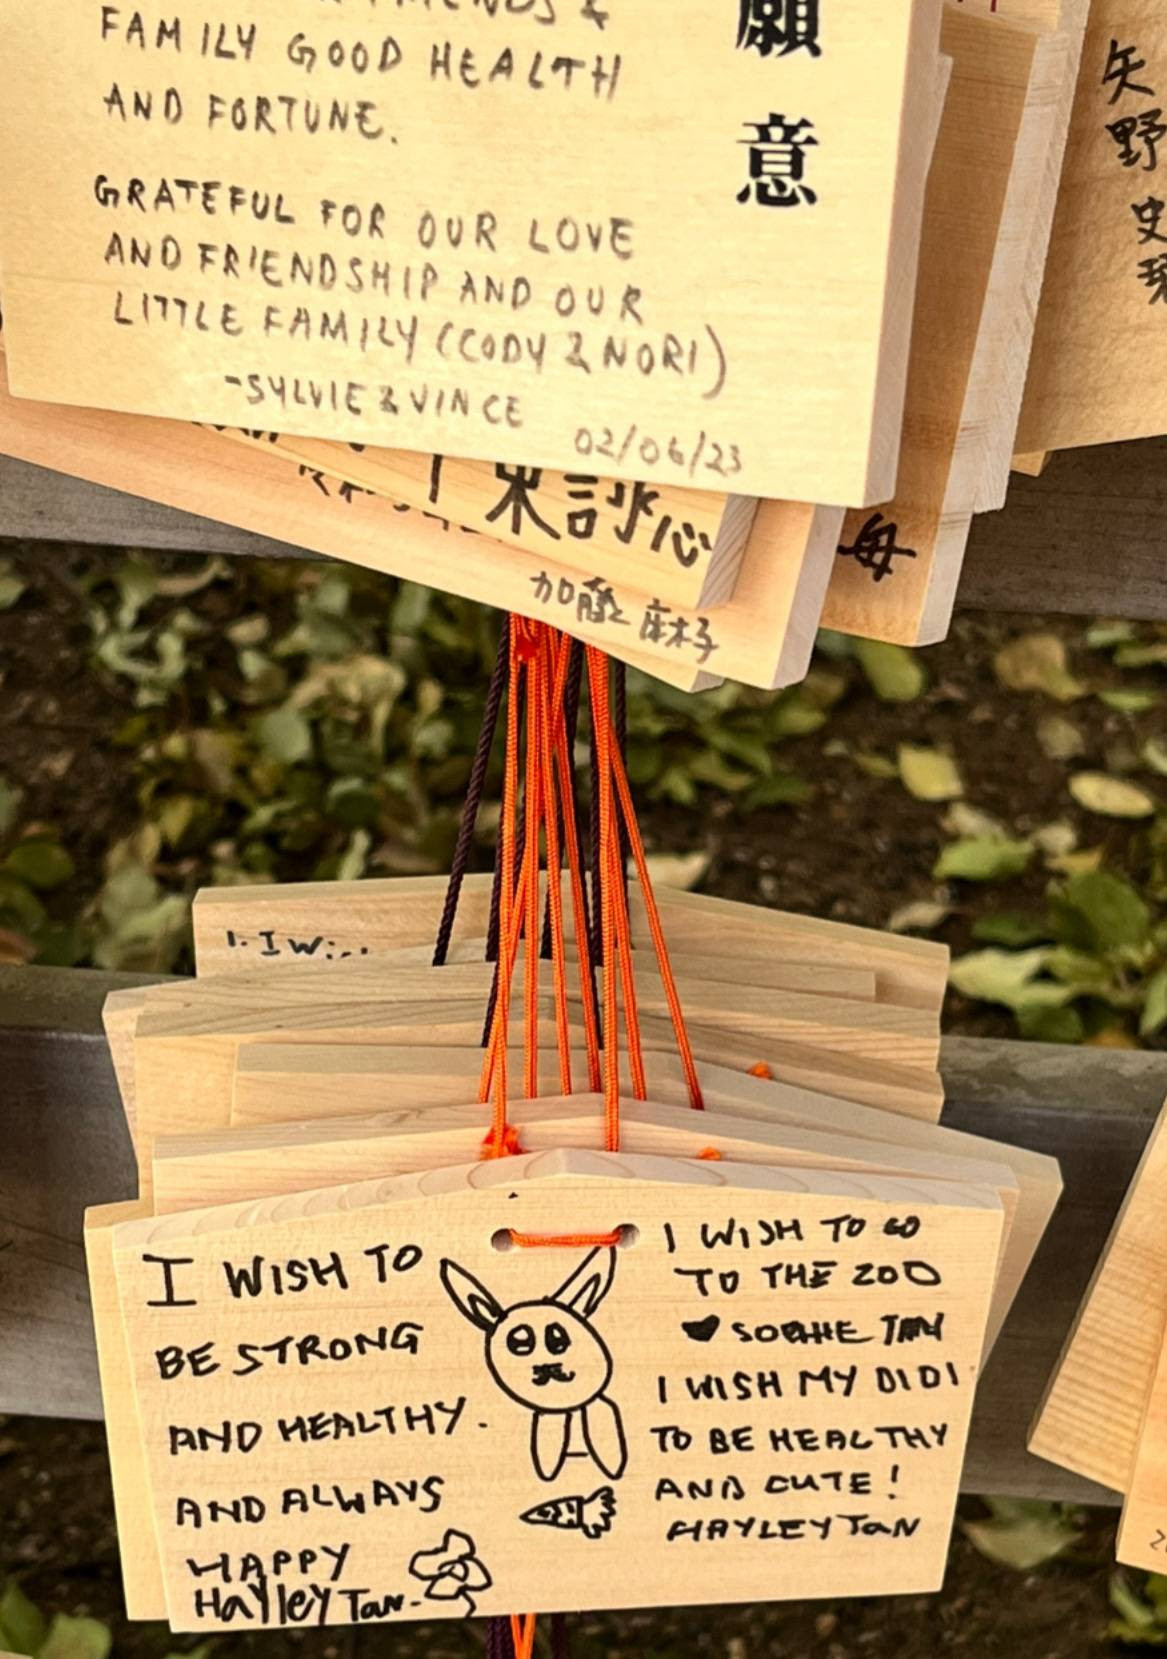 FAMILY GOOD HEALTH
AND FORTUNE.
GRATEFUL FOR OUR LOVE
AND FRIENDSHIP AND OUR
LITTLE FAMILY (CODY & NORI)
-SYLVIE & VINCE
02/06/23
願
意
矢
野
史
母
加藤 麻子
1. I W
I WISH TO
BE STRONG
AND HEALTHY.
AND ALWAYS
HAPPY
Hayley Tan.
I WISH TO GO
TO THE ZOO
♥ SOPHIE TAN
I WISH MY DIDI
TO BE HEALTHY
AND CUTE!
HAYLEY TAN